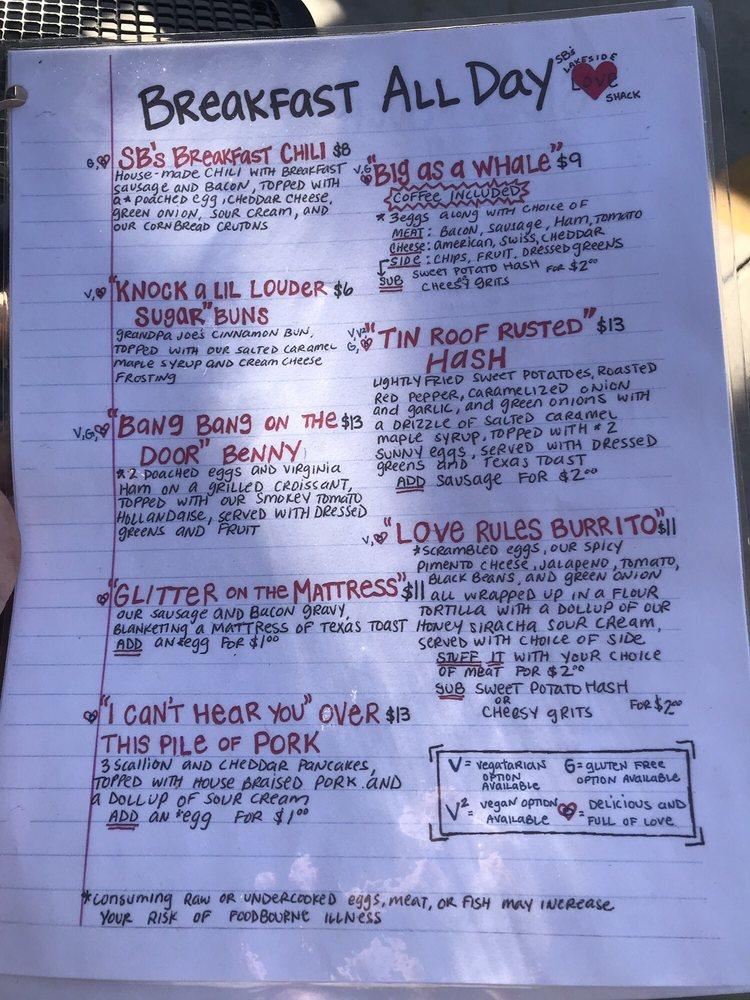 BREAKFAST ALL DAY
SB's
LAKESIDE
LOVE
SHACK
G, SB's BREAKFAST CHILI $8
HOUSE-MADE CHILI WITH BREAKFAST
SAUSAGE AND BACON, TOPPED WITH
a * POACHED egg, CHEDDAR CHEESE,
GREEN ONION, SOUR CREAM, AND
OUR CORNBREAD CRUTONS
V, "KNOCK a LIL LOUDER $6
SUGAR" BUNS
GRANDPA JOE'S CINNAMON BUN,
TOPPED WITH OUR SALTED CARAMEL
MAPLE SYRUP AND CREAM CHEESE
FROSTING
V,G, "BANG BANG ON THE $13
DOOR" BENNY
*2 POACHED eggs AND VIRGINIA
HAM ON A GRILLED CROISSANT,
TOPPED WITH OUR SMOKEY TOMATO
HOLLANDAISE, SERVED WITH DRESSED
GREENS AND FRUIT
"GLITTER ON THE MATTRESS" $11
OUR SAUSAGE AND BACON GRAVY,
BLANKETING A MATTRESS OF TEXAS TOAST
ADD AN *egg FOR $1.00
"I CAN'T HEAR YOU" OVER $13
THIS PILE OF PORK
3 SCALLION AND CHEDDAR PANCAKES,
TOPPED WITH HOUSE BRAISED PORK AND
A DOLLUP OF SOUR CREAM
ADD AN *egg FOR $1.00
V,G "BIG AS A WHALE" $9
COFFEE INCLUDED
* 3 eggs ALONG WITH CHOICE OF
MEAT: BACON, SAUSAGE, HAM, TOMATO
CHEESE: AMERICAN, SWISS, CHEDDAR
SIDE: CHIPS, FRUIT, DRESSED GREENS
SUB SWEET POTATO HASH FOR $2.00
OR
CHEESY GRITS
V, V² G, "TIN ROOF RUSTED" $13
HASH
LIGHTLY FRIED SWEET POTATOES, ROASTED
RED PEPPER, CARAMELIZED ONION
AND GARLIC, AND GREEN ONIONS WITH
A DRIZZLE OF SALTED CARAMEL
MAPLE SYRUP, TOPPED WITH * 2
SUNNY EGGS, SERVED WITH DRESSED
GREENS AND TEXAS TOAST
ADD SAUSAGE FOR $2.00
V, "LOVE RULES BURRITO" $11
*SCRAMBLED EGGS, OUR SPICY
PIMENTO CHEESE, JALAPENO, TOMATO,
BLACK BEANS, AND GREEN ONION
ALL WRAPPED UP IN A FLOUR
TORTILLA WITH A DOLLUP OF OUR
HONEY SIRACHA SOUR CREAM,
SERVED WITH CHOICE OF SIDE
STUFF IT WITH YOUR CHOICE
OF MEAT FOR $2.00
SUB SWEET POTATO HASH
OR FOR $2.00
CHEESY GRITS
V = VEGATARIAN OPTION AVAILABLE
G = GLUTEN FREE OPTION AVAILABLE
V² = VEGAN OPTION AVAILABLE
= DELICIOUS AND FULL OF LOVE
*CONSUMING RAW OR UNDERCOOKED EGGS, MEAT, OR FISH MAY INCREASE
YOUR RISK OF FOODBOURNE ILLNESS